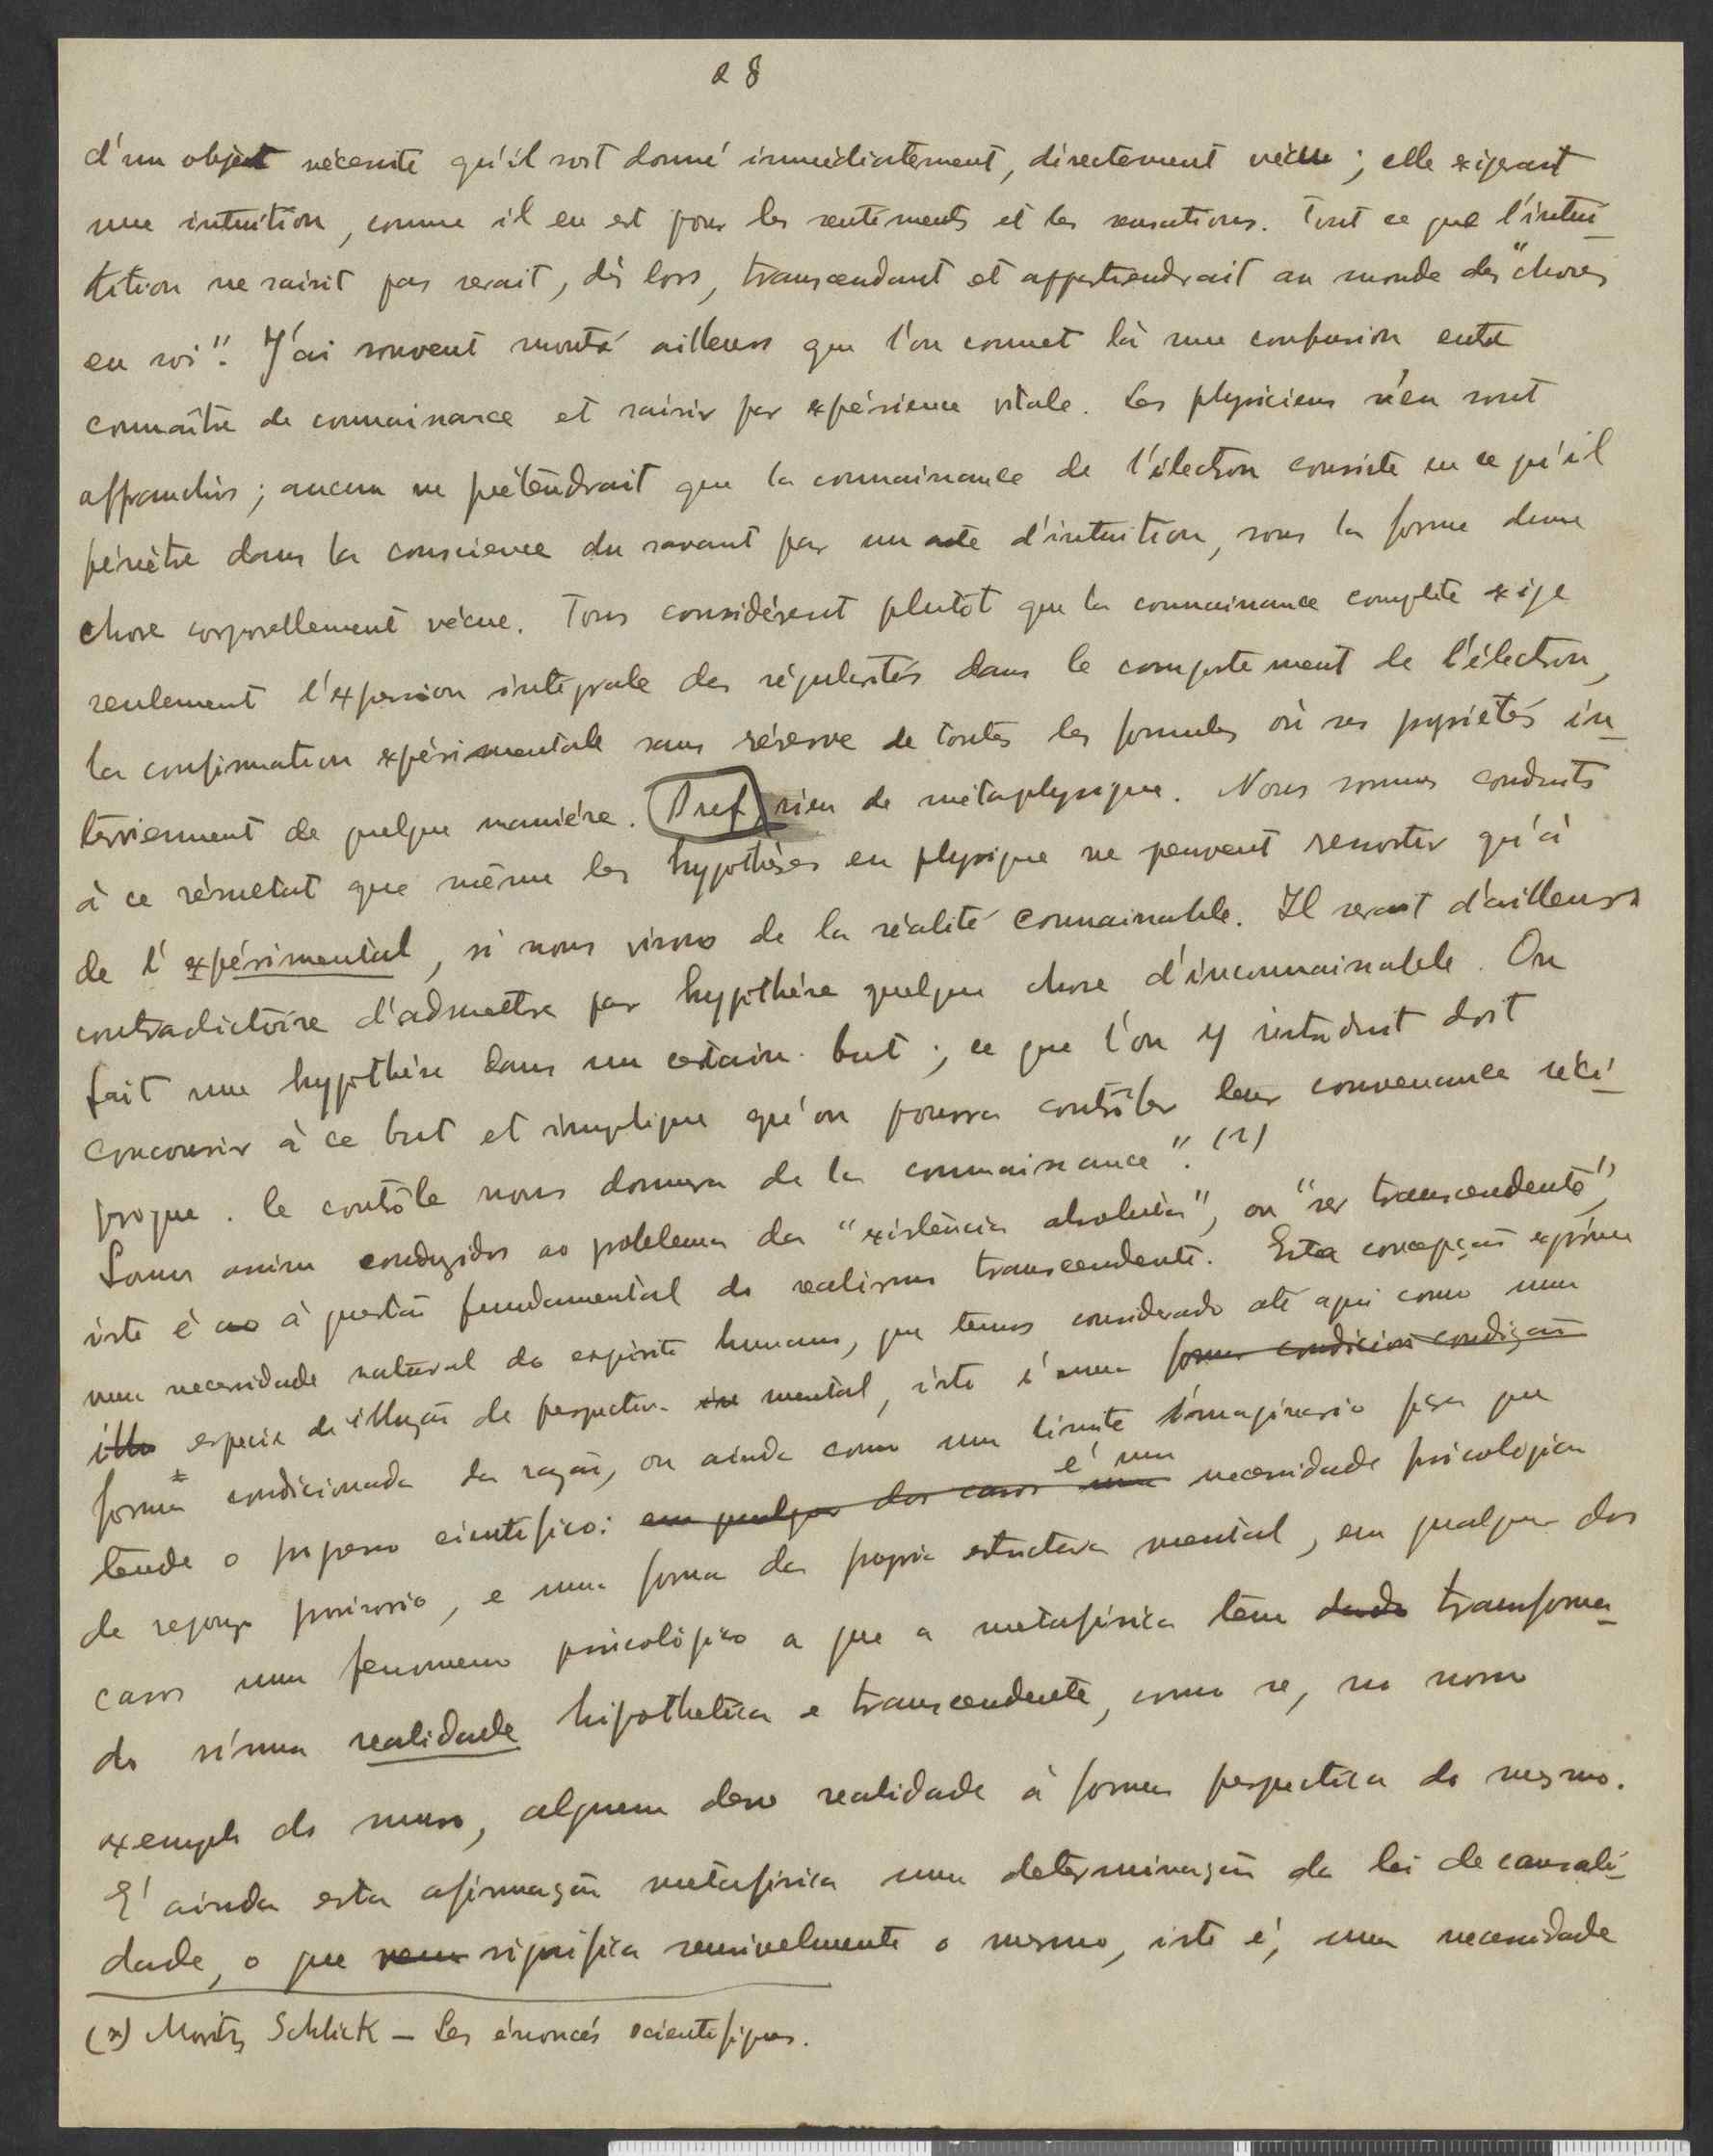 28
d'un objet nécessite qu'il soit donné immédiatement, directement vécu; elle exigerait
une intuition, comme il en est pour les sentiments et les sensations. Tout ce que l'intui-
tition ne saisit pas serait, dès lors, transcendant et appartiendrait au monde des "choses
en soi". J'ai souvent montré ailleurs que l'on commet là une confusion entre
connaître de connaissance et saisir par expérience vitale. Les physiciens s'en sont
affranchis; aucun ne prétendrait que la connaissance de l'électron consiste en ce qu'il
pénètre dans la conscience du savant par un acte d'intuition, sous la forme d'une
chose corporellement vécue. Tous considérent plutôt que la connaissance complète exige
seulement l'expression intégrale des régularités dans le comportement de l'électron,
la confirmation expérimentale sans réserve de toutes les formules où ses propriétés in-
terviennent de quelque maniére. Bref, rien de métaphysique. Nous sommes conduits
à ce résultat que même les hypothèses en physique ne peuvent ressortir qu'à
de l'expérimental, si nous visons de la réalité connaissable. Il serait d'ailleurs
contradictoire d'admettre par hypothése quelque chose d'inconnaissable. On
fait une hypothèse dans un certain but; ce que l'on y introduit doit
concourir à ce but et implique qu'on pourra contrôler leur convenance réci-
proque. Le contrôle nous donnera de la connaissance". (1)
Somos assim conduzidos ao problema da "existência absoluta", ou "ser transcendente",
isto é ao à questão fundamental do realismo transcendente. Esta concepção exprime
uma necessidade natural do espirito humano, que temos considerado até aqui como uma
illu especie de illuzão de perspectiva in mental, isto é uma forma condicion condição
forma condicionada da razão, ou ainda como um limite imaginario para que
tende o progresso cientifico: em qualquer dos casos uma é uma necessidade psicologica
de repouso provisorio, e uma forma da propria estructura mental, em qualquer dos
casos um fenomeno psicológico a que a metafisica tem dado transforma-
do n'uma realidade hipothetica e transcendente, como se, no nosso
exemplo do muro, alguem desse realidade à forma perspectica do mesmo.
E' ainda esta afirmação metafisica uma determinação da lei de causali-
dade, o que vem significa sensivelmente o mesmo, isto é, uma necessidade
(1) Moritz Schlick – Les énoncés scientifiques.